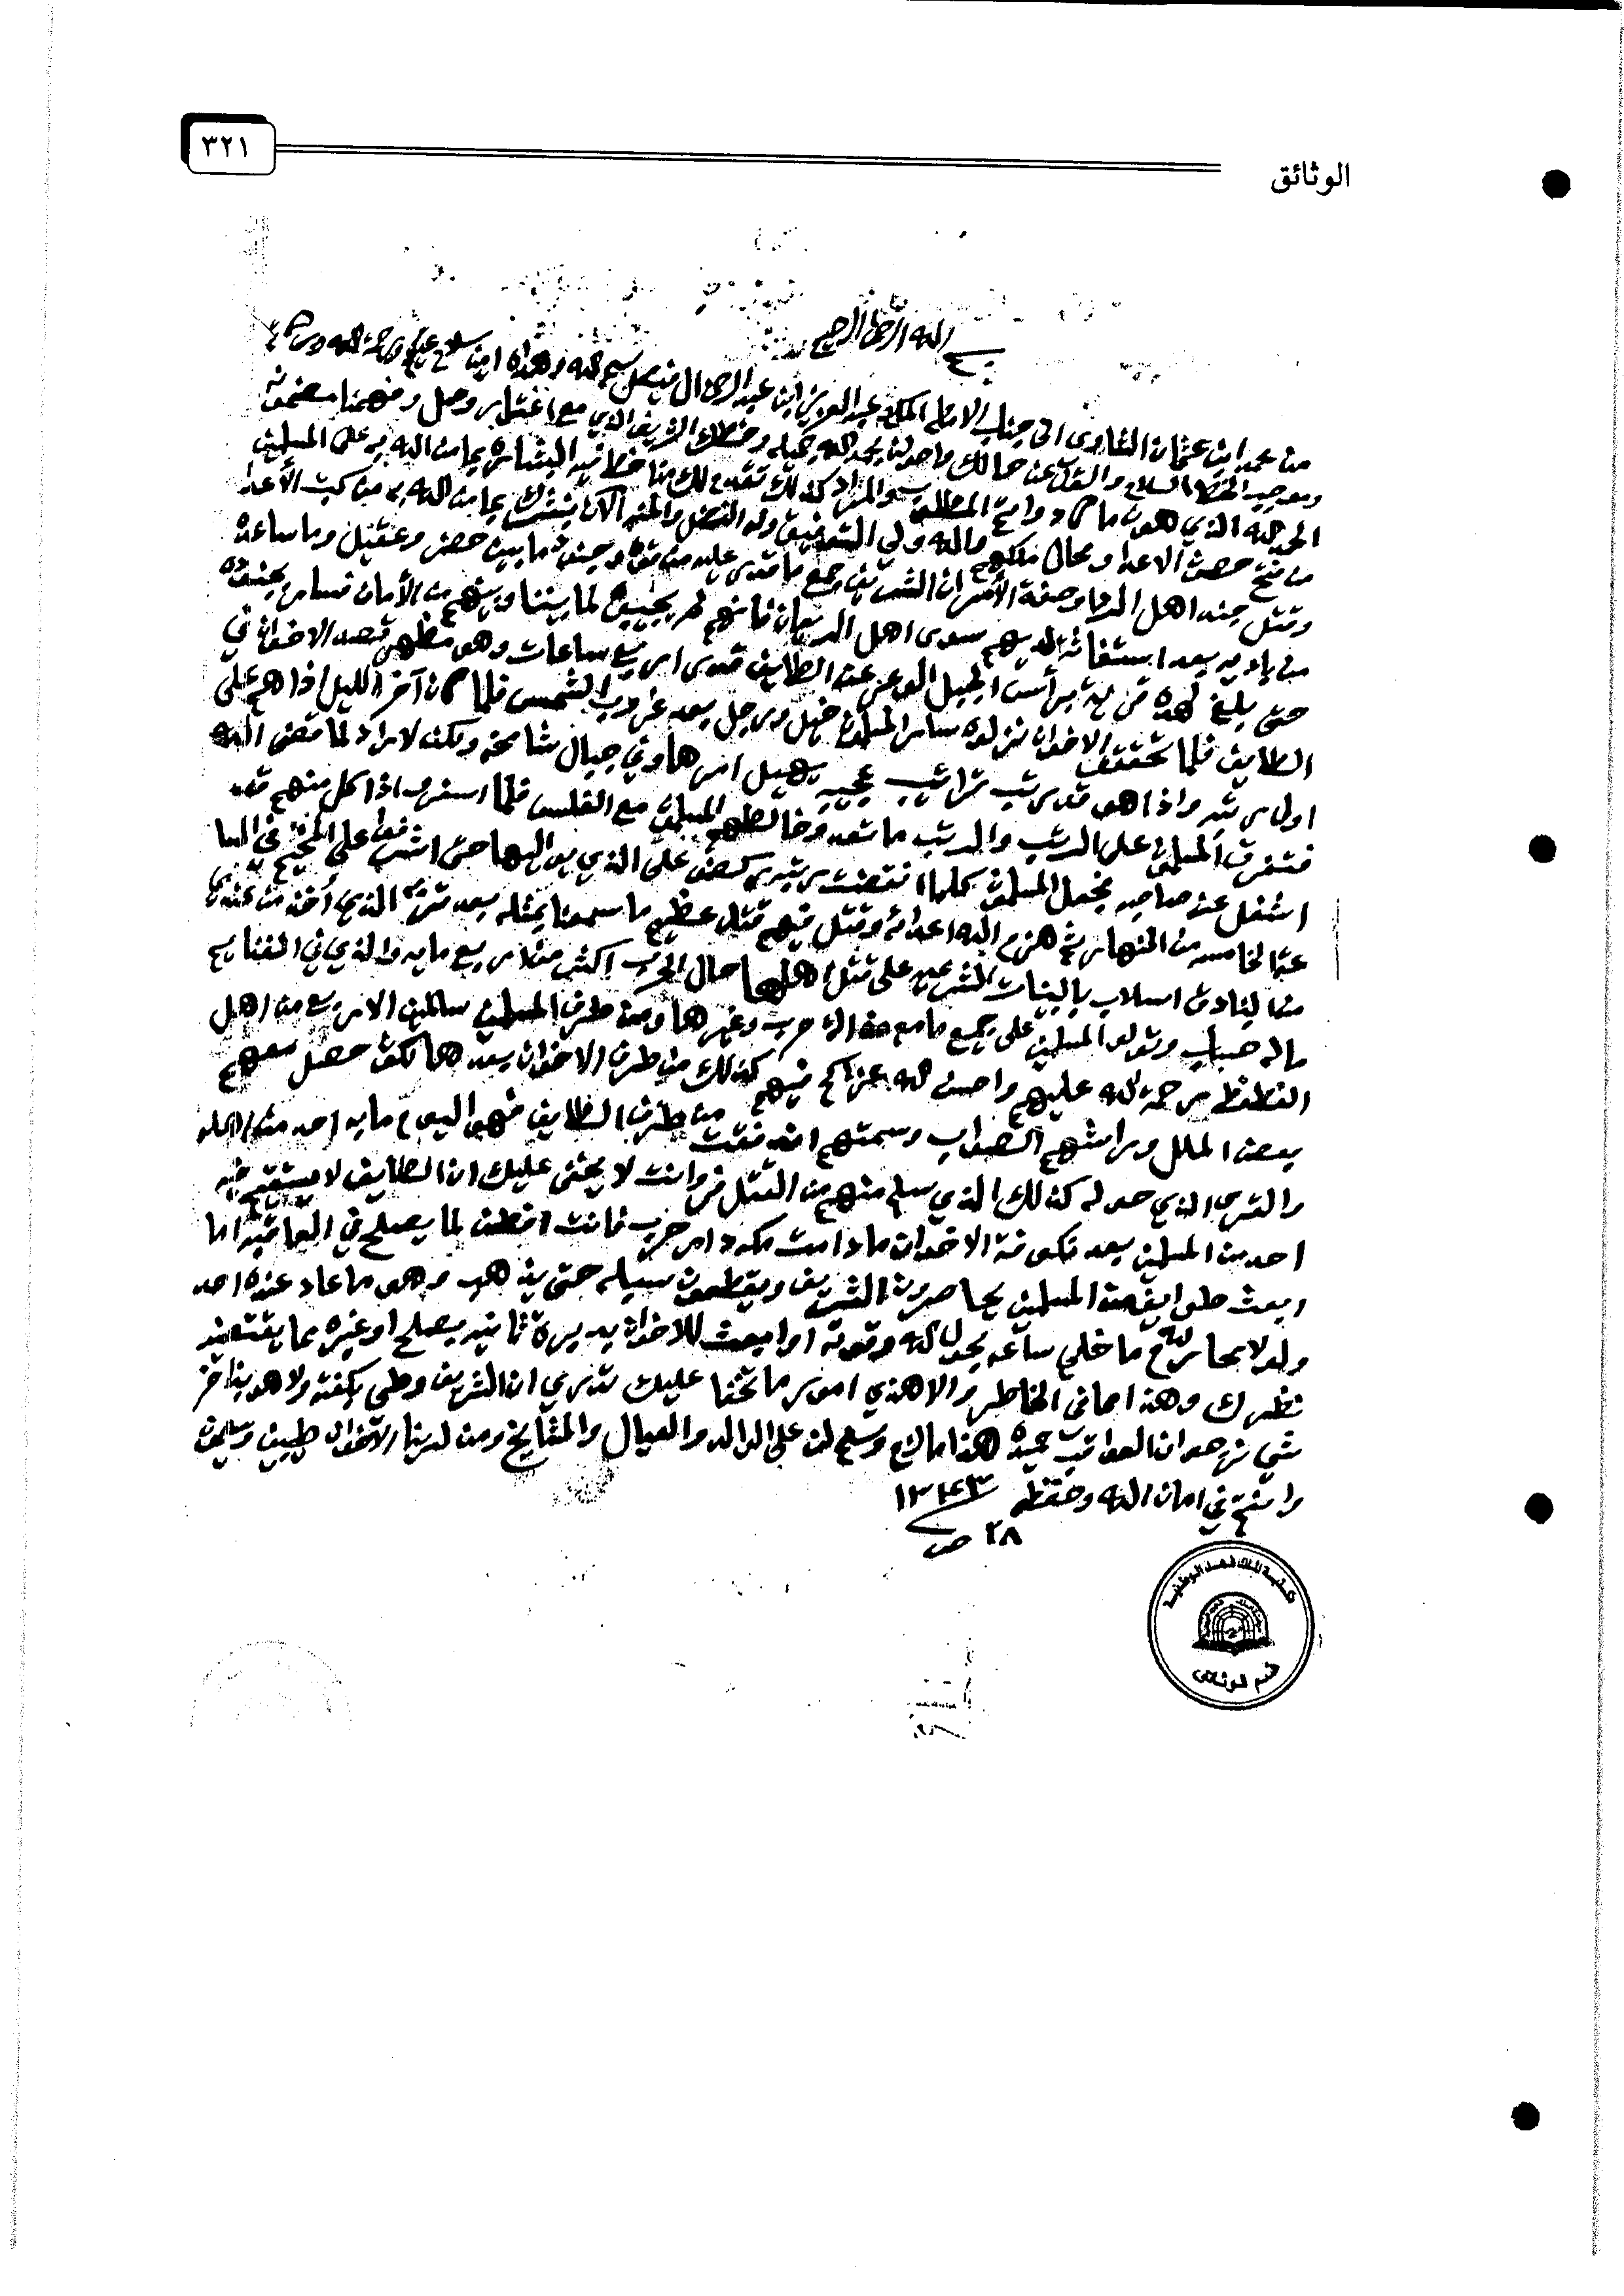 ٣٢١
الوثائق
بسم الله الرحمن الرحيم
من محمد ابن عثمان الشاوى الى جناب الامام المكرم عبد العزيز ابن عبد الرحمن ال فيصل سلمه الله وهداه امين سلام عليكم ورحمة الله وبركاته
وموجب الخط السلام والسؤال عن حالك واحوالنا بحمد الله جميله وخطك الشريف الذي مع وصل وفهمنا مضمونه
الحمد لله الذي هون ما كاد وانتج المطلوب والمراد كذلك تقدم لك منا خط فيه البشاره بما من الله به على المسلمين
من فتح حصن الاعداء ومحال ملكهم والله ولي التوفيق وله الفضل والمنه الان نبشرك بما من الله به من كبت الأعداء
وقتل جند اهل الردا وصفة الأمر ان الشريف جمع ما قدر عليه من قوة وجنود ما بين حضر وعقيل وما ساعده
من باديه بعد استغاثته لديهم سوى اهل فانهم لم يجيبون لما بيننا وبينهم من الأمان فسار بجنوده
حتى بلغ الهده قرية برأس الجبل الوعر عن الطايف قدر اربع ساعات وهو مظهر قصد الاخوان في
الطايف فلما تحققوا الاخوان نزوله ساروا المسلمون خيل ورجل بعد غروب الشمس فلما كان آخر الليل اذا هم على
اول رتبه واذا هو قد رتب تراتيب عجيبه يهيل امرها وفي جبال شامخه ولكن لا راد لما قضى الله
فتفرق المسلمون على الرتب والرتب ما تعد وخالطهم المسلمون مع الغلس فلما اسفر اذا كل منهم قد
اشتغل عن صاحبه فجعل المسلمون كلما انقضت رتبه ركضوا على الذي يواليها حتى اشرفوا على المخيم في الساعه
الخامسه من النهار ثم هزم الله اعداءه وقتل فيهم قتل عظيم ما سمعنا بمثله بعد تربه الذي اخذ من عندهم
من البنادق اسلاب بالبينات الشرعيه على قتل اهلها حال الحرب اكثر من اربع مايه والذي في الغنايم
ماله حساب وتولوا المسلمين على جميع ما معه من الات حرب وغيرها ومن طرف المسلمين سالمين الا اربع من اهل
الغطغط رحمة الله عليهم واحسن الله عزاكم فيهم كذلك من طرف الاخوان بعد هالكون حصل معهم
بعض الملل ورايتهم الصواب وسمتهم من طرف الطايف فهو اليوم ما به احد من اهله
والقرى الذي حوله كذلك الذي سلم منهم من القتل فر وانت لا يخفى عليك ان الطايف لا يستقيم فيه
احد من المسلمين بعد الاخوان ما دامت مكه دار حرب فانت افطن لما يصلح في العاقبه اما
ابعث طوايف من المسلمين يحاصرون الشريف ويقطعون سبيله حتى يذهب وهو ما عاد عنده احد
ولولا ما خلي ساعه بحول الله وقوته او ابعث للاخوان بديره ثانيه بصلح او غيره مما يقتضيه
نظرك وهذا مما في الخاطر والا هذي امور ما تخفا عليك تدري ان الشريف وطي ولا هو بذاخر
شي نرجو ان العواقب حميده هذا ما لزم وسلم لنا على الوالد والعيال والمشايخ ومن لدينا الاخوان طيبين ويسلمون
وانتم في امان الله وحفظه ١٣٤٣
٢٨ ص
مكتبة الملك فهد الوطنية
قسم الوثائق